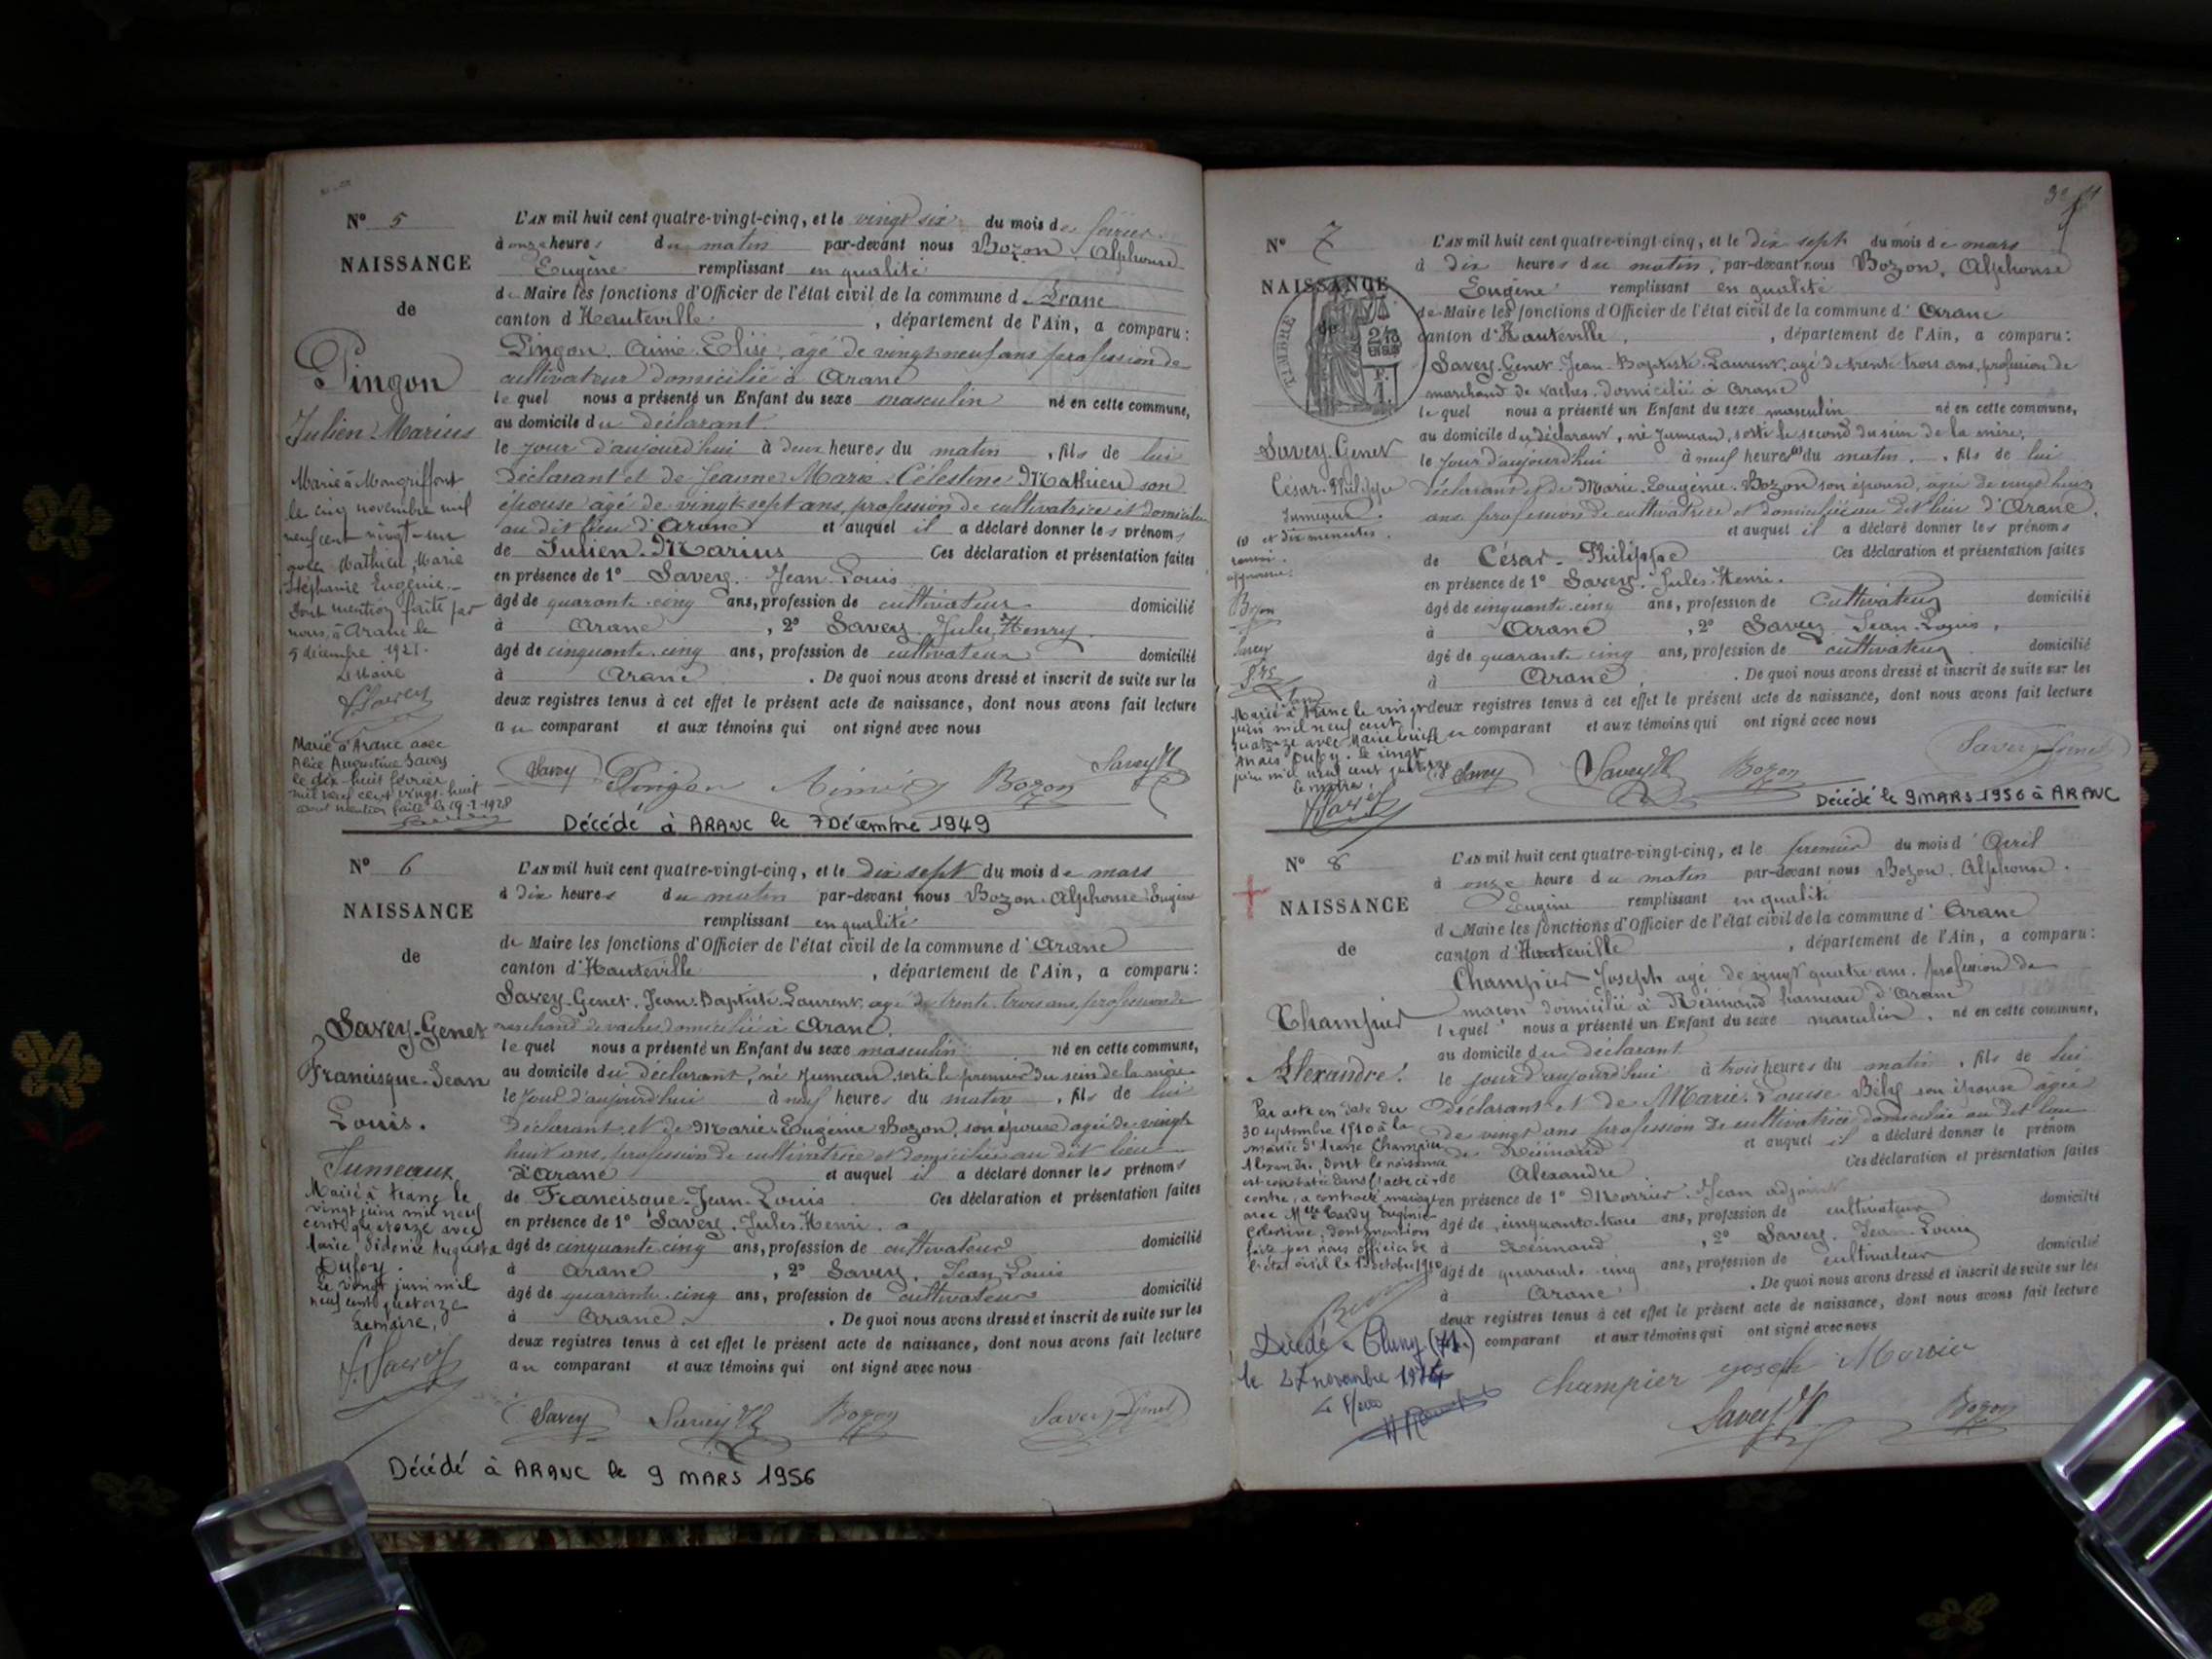 N° 5
NAISSANCE
de
Pingon
Julien Marius
Marié à Mongriffont
le cinq novembre mil
neuf cent vingt-un
avec Mathieu, Marie
Stéphanie Eugénie.
Dont mention faite par
nous, à Aranc le
5 décembre 1921.
Le Maire
Savey
Marié à Aranc avec
Alice Augustine Savey
le dix-huit février
mil neuf cent vingt-huit
dont mention faite le 19-2-1928
L'AN mil huit cent quatre-vingt-cinq, et le vingt six du mois de février
à onze heures du matin par-devant nous Bozon, Alphonse
Eugène remplissant en qualité
de Maire les fonctions d'Officier de l'état civil de la commune d'Aranc
canton d'Hauteville, département de l'Ain, a comparu :
Pingon, Aimé Elisé, agé de vingt neuf ans profession de
cultivateur domicilié à Aranc
lequel nous a présenté un Enfant du sexe masculin né en cette commune,
au domicile du déclarant
le jour d'aujourd'hui à deux heures du matin, fils de lui
déclarant et de Jeanne Marie Célestine Mathieu son
épouse agé de vingt-sept ans, profession de cultivatrice et domiciliée
au dit lieu d'Aranc et auquel il a déclaré donner les prénoms
de Julien Marius Ces déclaration et présentation faites
en présence de 1° Savey, Jean Louis
âgé de quarante-cinq ans, profession de cultivateur domicilié
à Aranc, 2° Savey, Jules Henry
âgé de cinquante-cinq ans, profession de cultivateur domicilié
à Aranc. De quoi nous avons dressé et inscrit de suite sur les
deux registres tenus à cet effet le présent acte de naissance, dont nous avons fait lecture
au comparant et aux témoins qui ont signé avec nous
Savey Pingon Aimé Bozon Savey JH
Décédé à ARANC le 7 Décembre 1949
N° 6
NAISSANCE
de
Savey-Genet
Francisque-Jean
Louis.
Jumeaux
Marié à Aranc le
vingt juin mil neuf
cent quatorze avec
Marie Sidonie Augusta
Dufoy.
Le vingt juin mil
neuf cent quatorze
Le maire,
Savey
L'AN mil huit cent quatre-vingt-cinq, et le dix sept du mois de mars
à dix heures du matin par-devant nous Bozon Alphonse Eugène
remplissant en qualité
de Maire les fonctions d'Officier de l'état civil de la commune d'Aranc
canton d'Hauteville, département de l'Ain, a comparu :
Savey-Genet, Jean-Baptiste-Laurent, agé de trente trois ans, profession de
marchand de vaches, domicilié à Aranc.
lequel nous a présenté un Enfant du sexe masculin né en cette commune,
au domicile du déclarant, né Jumeau, sorti le premier du sein de la mère
le jour d'aujourd'hui à neuf heures du matin, fils de lui
déclarant et de Marie-Eugénie Bozon, son épouse agée de vingt
huit ans, profession de cultivatrice et domiciliée au dit lieu
d'Aranc et auquel il a déclaré donner les prénoms
de Francisque-Jean-Louis Ces déclaration et présentation faites
en présence de 1° Savey, Jules Henri.
âgé de cinquante-cinq ans, profession de cultivateur domicilié
à Aranc, 2° Savey, Jean Louis
âgé de quarante-cinq ans, profession de cultivateur domicilié
à Aranc. De quoi nous avons dressé et inscrit de suite sur les
deux registres tenus à cet effet le présent acte de naissance, dont nous avons fait lecture
au comparant et aux témoins qui ont signé avec nous
Savey Savey JH Bozon Savey-Genet
Décédé à ARANC le 9 MARS 1956
N° 7
NAISSANCE
de
TIMBRE
Savey-Genet
César-Philippe
Jumeaux
(1) et dix minutes.
renvoi
approuvé.
Bozon
Savey
Marié à Aranc le vingt
juin mil neuf cent
quatorze avec Marie Louise
Anaïs Dufoy. Le vingt
juin mil neuf cent quatorze
le maire
Savey
L'AN mil huit cent quatre-vingt-cinq, et le dix sept du mois de mars
à dix heures du matin, par-devant nous Bozon, Alphonse
Eugène remplissant en qualité
de Maire les fonctions d'Officier de l'état civil de la commune d'Aranc
canton d'Hauteville, département de l'Ain, a comparu :
Savey-Genet, Jean-Baptiste-Laurent, agé de trente trois ans, profession de
marchand de vaches, domicilié à Aranc
lequel nous a présenté un Enfant du sexe masculin né en cette commune,
au domicile du déclarant, né Jumeau, sorti le second du sein de la mère,
le jour d'aujourd'hui à neuf heures (1) du matin, fils de lui
déclarant et de Marie-Eugénie-Bozon son épouse, agée de vingt huit
ans, profession de cultivatrice et domiciliée au dit lieu d'Aranc.
et auquel il a déclaré donner les prénoms
de César-Philippe Ces déclaration et présentation faites
en présence de 1° Savey, Jules Henri.
âgé de cinquante-cinq ans, profession de Cultivateur domicilié
à Aranc, 2° Savey Jean-Louis,
âgé de quarante cinq ans, profession de cultivateur domicilié
à Aranc. De quoi nous avons dressé et inscrit de suite sur les
deux registres tenus à cet effet le présent acte de naissance, dont nous avons fait lecture
au comparant et aux témoins qui ont signé avec nous
Savey Savey JH Bozon Savey-Genet
Décédé le 9 MARS 1956 à ARANC
N° 8
NAISSANCE
de
Champier
Alexandre.
Par acte en date du
30 septembre 1910 à la
mairie d'Aranc Champier
Alexandre, dont la naissance
est constatée dans l'acte ci-
contre, a contracté mariage
avec Melle Eugénie
Célestine, dont mention
faite par nous officier de
l'état civil le 1 octobre 1910
Décédé à Cluny (71.)
le 27 novembre
L'AN mil huit cent quatre-vingt-cinq, et le premier du mois d'Avril
à onze heure du matin par-devant nous Bozon, Alphonse.
Eugène remplissant en qualité
de Maire les fonctions d'Officier de l'état civil de la commune d'Aranc
canton d'Hauteville, département de l'Ain, a comparu :
Champier Joseph agé de vingt quatre ans, profession de
maçon domicilié à Résinand hameau d'Aranc
lequel nous a présenté un Enfant du sexe masculin, né en cette commune,
au domicile du déclarant
le jour d'aujourd'hui à trois heures du matin, fils de lui
déclarant et de Marie-Louise Bély son épouse âgée
de vingt ans profession de cultivatrice domiciliée au dit lieu
de Résinand et auquel il a déclaré donner le prénom
de Alexandre Ces déclaration et présentation faites
en présence de 1° Morrier Jean adjoint
âgé de cinquante-trois ans, profession de cultivateur domicilié
à Résinand, 2° Savey, Jean-Louis
âgé de quarante-cinq ans, profession de cultivateur domicilié
à Aranc. De quoi nous avons dressé et inscrit de suite sur les
deux registres tenus à cet effet le présent acte de naissance, dont nous avons fait lecture
comparant et aux témoins qui ont signé avec nous
Champier Joseph
Savey JH Bozon